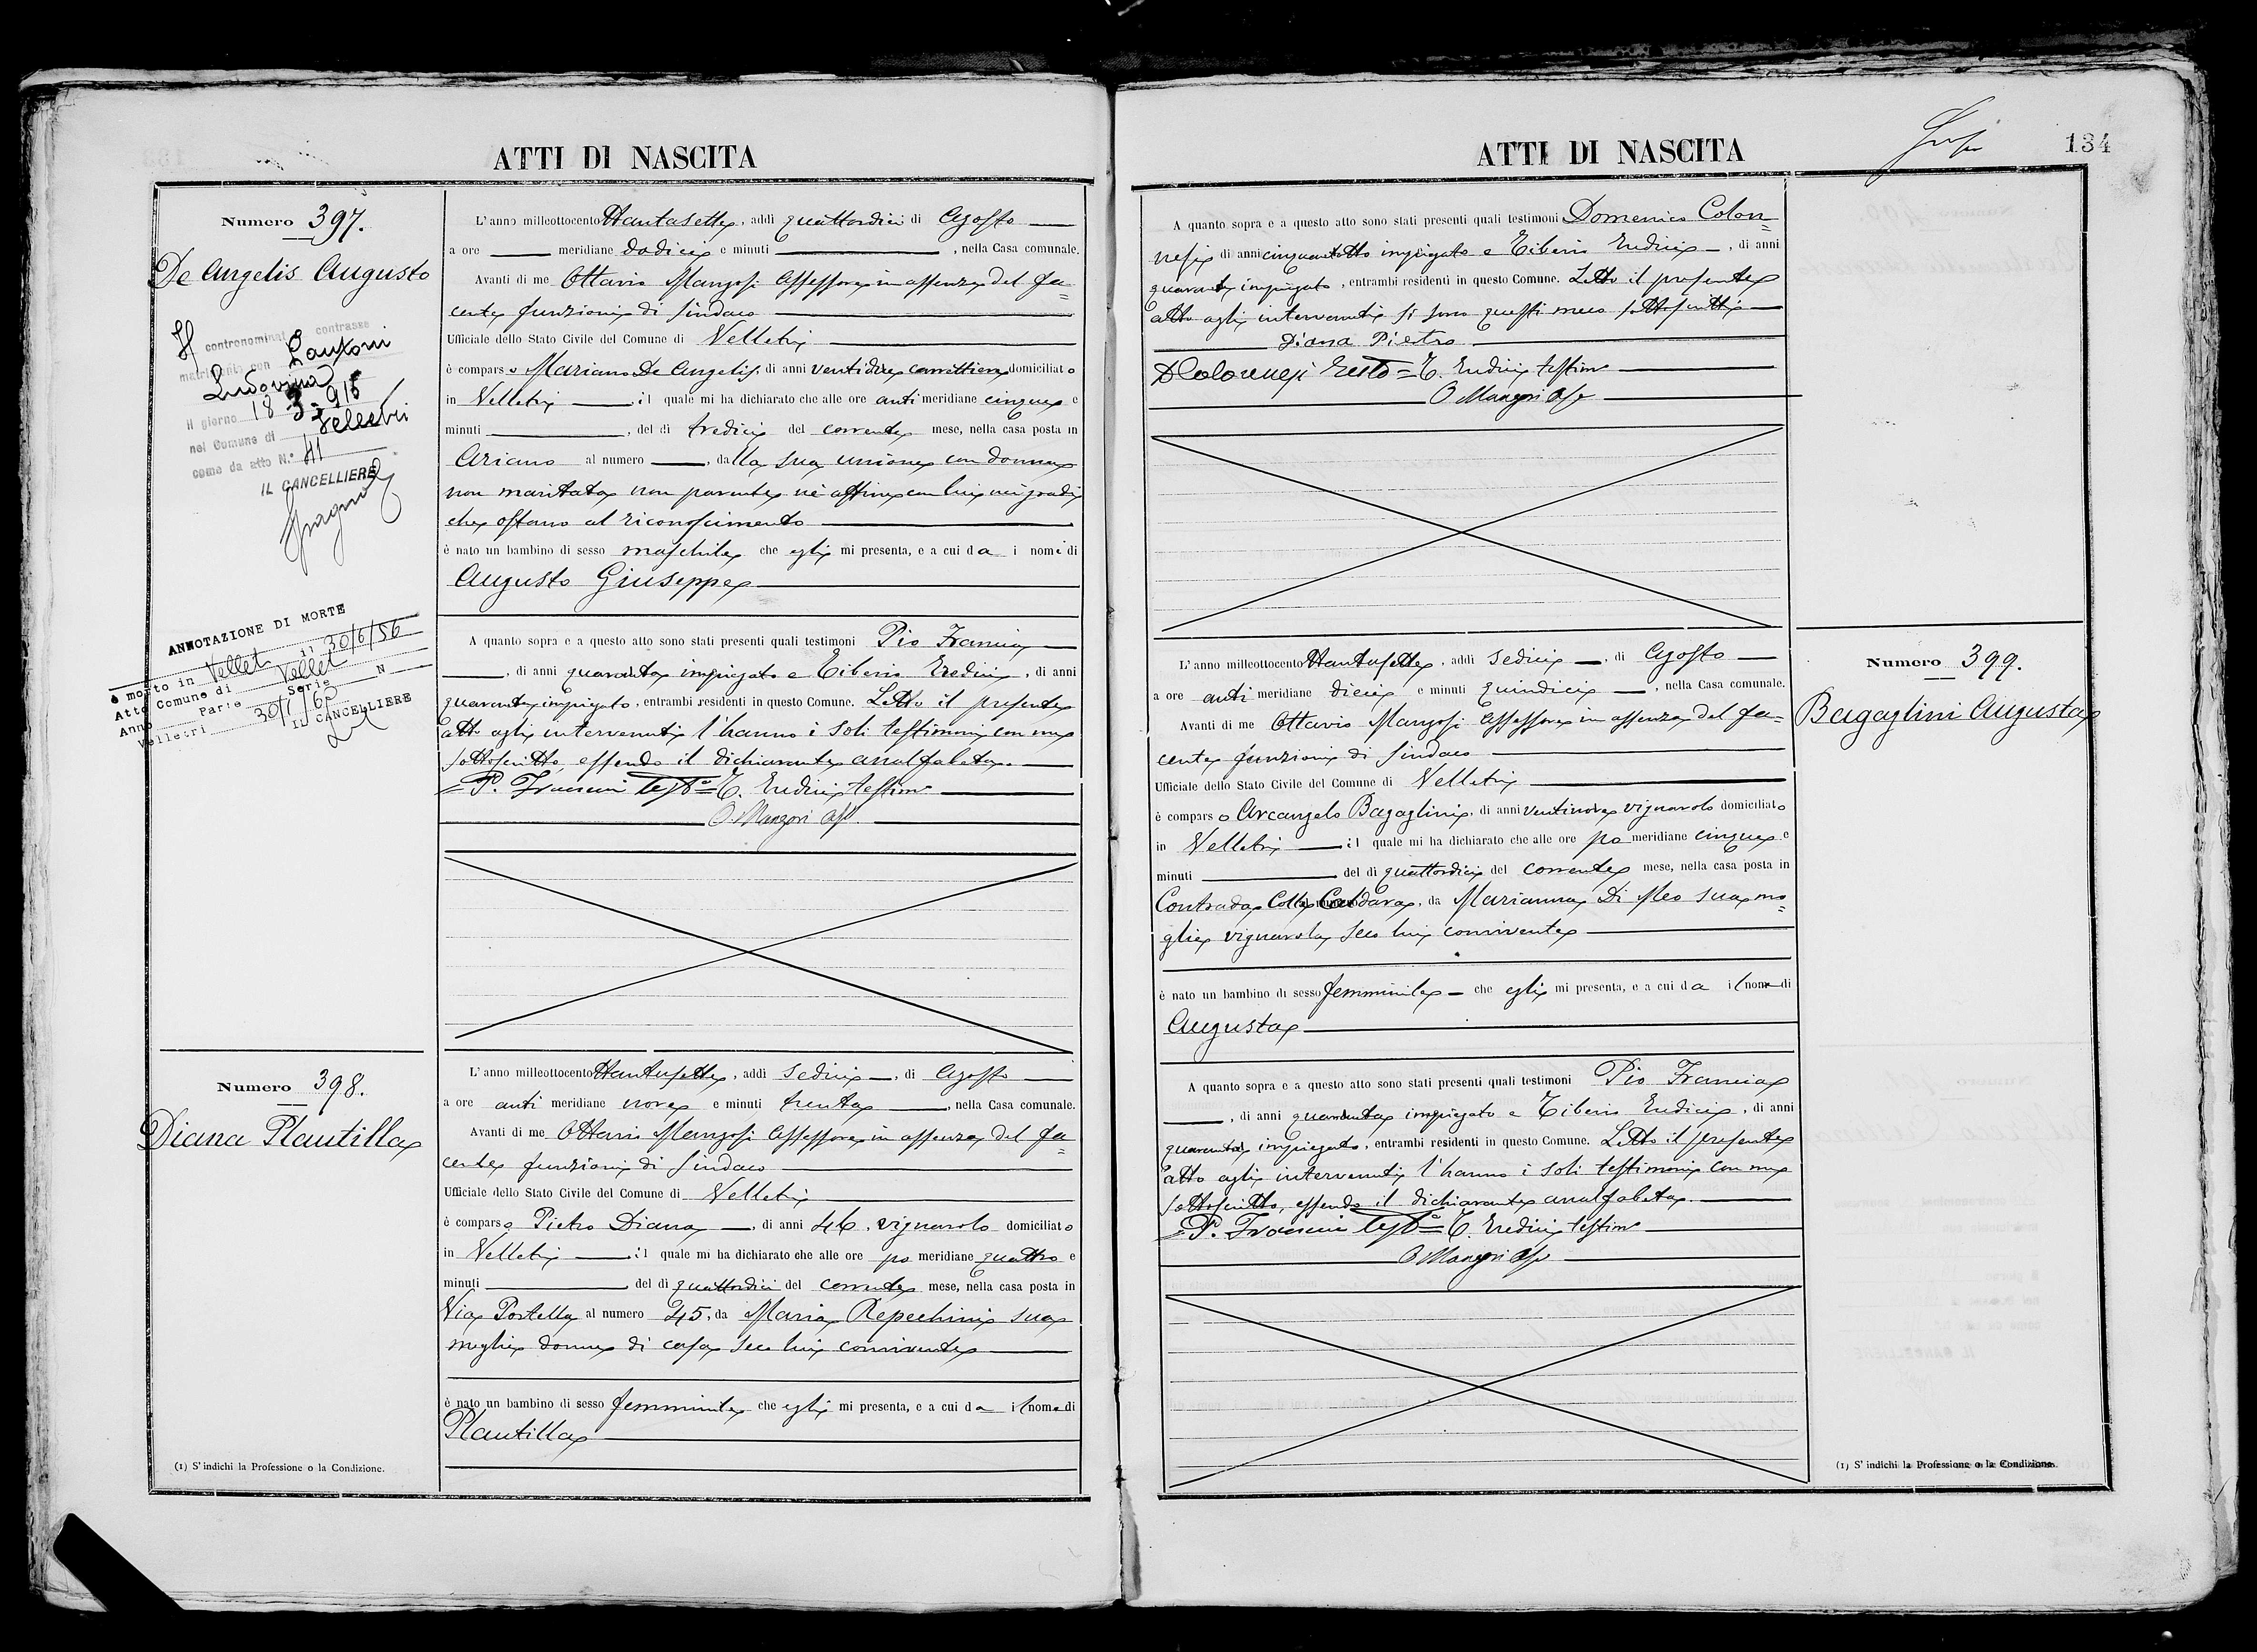 ATTI DI NASCITA
Numero 397.
De Angelis Augusto
Il contronominat contrasse
matrimonio con Lanzoni
Ludovina
il giorno 18-3-915
nel Comune di Velletri
come da atto N.° 41
IL CANCELLIERE
ANNOTAZIONE DI MORTE
è morto in Vellet il 30/6/56
Atto Comune di Vellet
Anno Parte Serie N
Velletri 30/7/62
IL CANCELLIERE
L'anno milleottocento Ottantasette, addì quattordici di Agosto
a ore meridiane dodici e minuti , nella Casa comunale.
Avanti di me Ottavio Mangosi Assessore in assenza del fa=
cente funzioni di Sindaco
Ufficiale dello Stato Civile del Comune di Velletri
è comparso Mariano De Angelis, di anni ventidue carrettiere domiciliato
in Velletri il quale mi ha dichiarato che alle ore antimeridiane cinque e
minuti , del dì tredici del corrente mese, nella casa posta in
Ariano al numero , dalla sua unione con donna
non maritata non parente nè affine con lui nei gradi
che ostano al riconoscimento
è nato un bambino di sesso maschile che egli mi presenta, e a cui da i nomi di
Augusto Giuseppe
A quanto sopra e a questo atto sono stati presenti quali testimoni Pio Francia
, di anni quaranta impiegato e Tiberio Eredici, di anni
quaranta impiegato, entrambi residenti in questo Comune. Letto il presente
atto agli intervenuti l'hanno i soli testimoni con me
sottoscritto, essendo il dichiarante analfabeta.
= P. Francia Testo = T. Eredici testim
O. Mangosi Ass.
Numero 398.
Diana Plautilla
L'anno milleottocento Ottantasette, addì sedici, di Agosto
a ore anti meridiane nove e minuti trenta, nella Casa comunale.
Avanti di me Ottavio Mangosi Assessore in assenza del fa=
cente funzioni di Sindaco
Ufficiale dello Stato Civile del Comune di Velletri
è comparso Pietro Diana, di anni 46, vignarolo domiciliato
in Velletri il quale mi ha dichiarato che alle ore po meridiane quattro e
minuti del dì quattordici del corrente mese, nella casa posta in
Via Portella al numero 45, da Maria Repechini sua
moglie donna di casa seco lui convivente
è nato un bambino di sesso femminile che egli mi presenta, e a cui da il nome di
Plautilla
(1) S'indichi la Professione o la Condizione.
ATTI DI NASCITA
134
A quanto sopra e a questo atto sono stati presenti quali testimoni Domenico Colon=
nesi di anni cinquantotto impiegato e Tiberio Eredici, di anni
quaranta impiegato, entrambi residenti in questo Comune. Letto il presente
atto agli intervenuti si sono questi meco sottoscritti
Diana Pietro
D Colonnesi Testo = T. Eredici testim
O Mangosi Ass
Numero 399.
Bagaglini Augusta
L'anno milleottocento Ottantasette, addì sedici, di Agosto
a ore anti meridiane dieci e minuti quindici, nella Casa comunale.
Avanti di me Ottavio Mangosi Assessore in assenza del fa=
cente funzioni di Sindaco
Ufficiale dello Stato Civile del Comune di Velletri
è comparso Arcangelo Bagaglini, di anni ventinove vignarolo domiciliato
in Velletri il quale mi ha dichiarato che alle ore po meridiane cinque e
minuti del dì quattordici del corrente mese, nella casa posta in
Contrada Colle Caldara, da Marianna Di Meo sua mo=
glie vignarola seco lui convivente
è nato un bambino di sesso femminile che egli mi presenta, e a cui da il nome di
Augusta
A quanto sopra e a questo atto sono stati presenti quali testimoni Pio Francia
, di anni quaranta impiegato e Tiberio Eredici, di anni
quaranta impiegato, entrambi residenti in questo Comune. Letto il presente
atto agli intervenuti l'hanno i soli testimoni con me
sottoscritto, essendo il dichiarante analfabeta.
= P. Francia Testo = T. Eredici testim
O Mangosi Ass
(1) S'indichi la Professione o la Condizione.